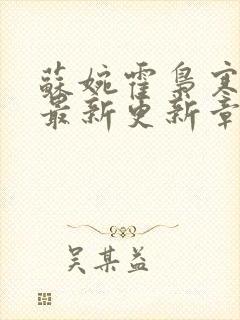 蘇婉霍梟寒
最新更新章
吴某益